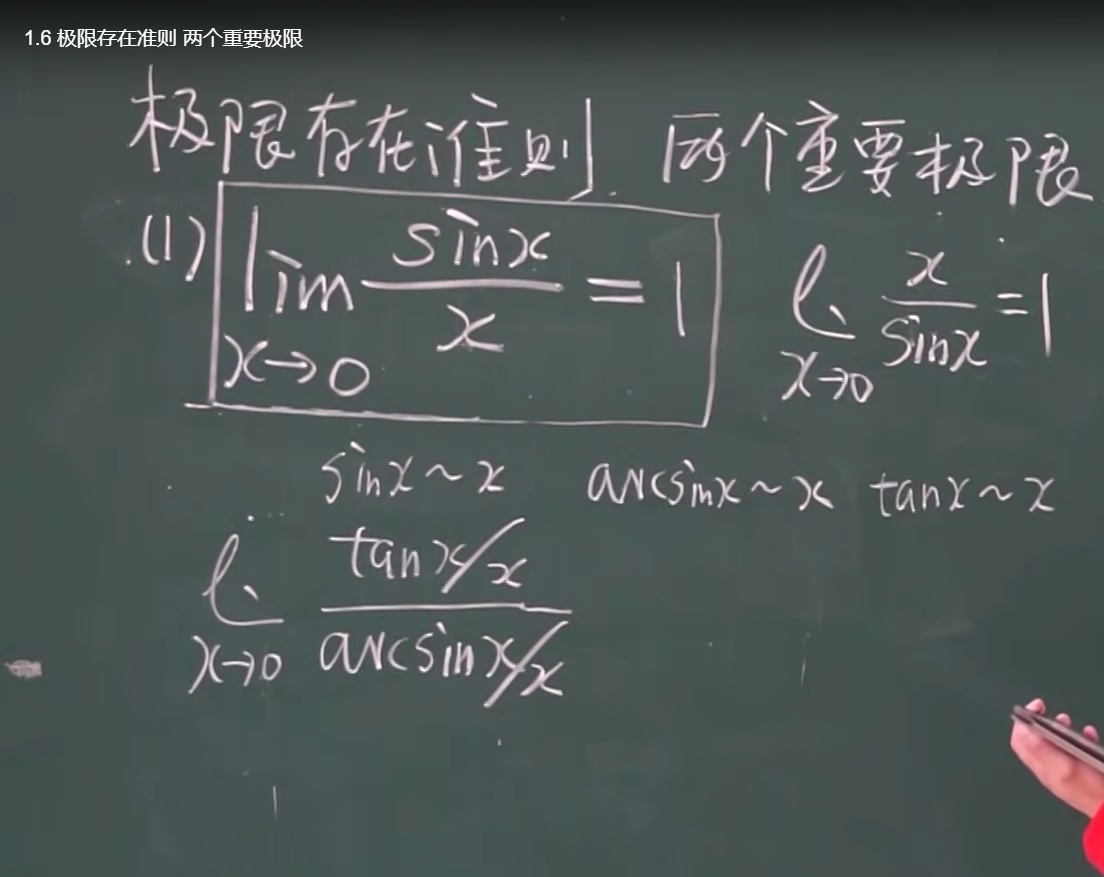 1.6 极限存在准则 两个重要极限
极限存在准则 两个重要极限
(1) lim x→0 sinx/x = 1 l. x→0 x/sinx = 1
sinx ~ x arcsinx ~ x tanx ~ x
l. x→0 (tanx/x)/(arcsinx/x)